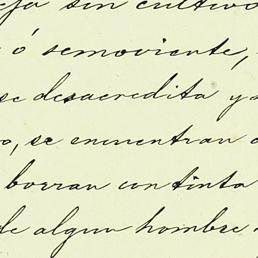 sin cultivo
ó semoviente,
se desacredita y
se encuentran
borran con tinta
de algun hombre